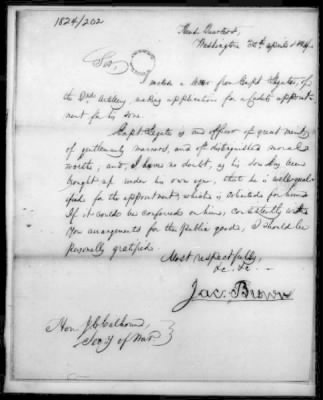 1824/202
Head Quarters,
Washington 20th April 1824.
Sir,
I enclose a letter from Capt. Legate, of
the 2nd Artillery, making application for a Cadet's appoint-
ment for his son.
Capt. Legate is an officer of great merit,
of gentlemanly manners, and of distinguished moral
worth, and, I have no doubt, as his son has been
brought up under his own eye, that he is well quali-
fied for the appointment which is solicited for him.
If it could be conferred on him, consistently with
your arrangements for the public good, I should be
personally gratified.
Most respectfully,
&c. &c.
Jac: Brown
Hon. J. C. Calhoun,
Secy of War